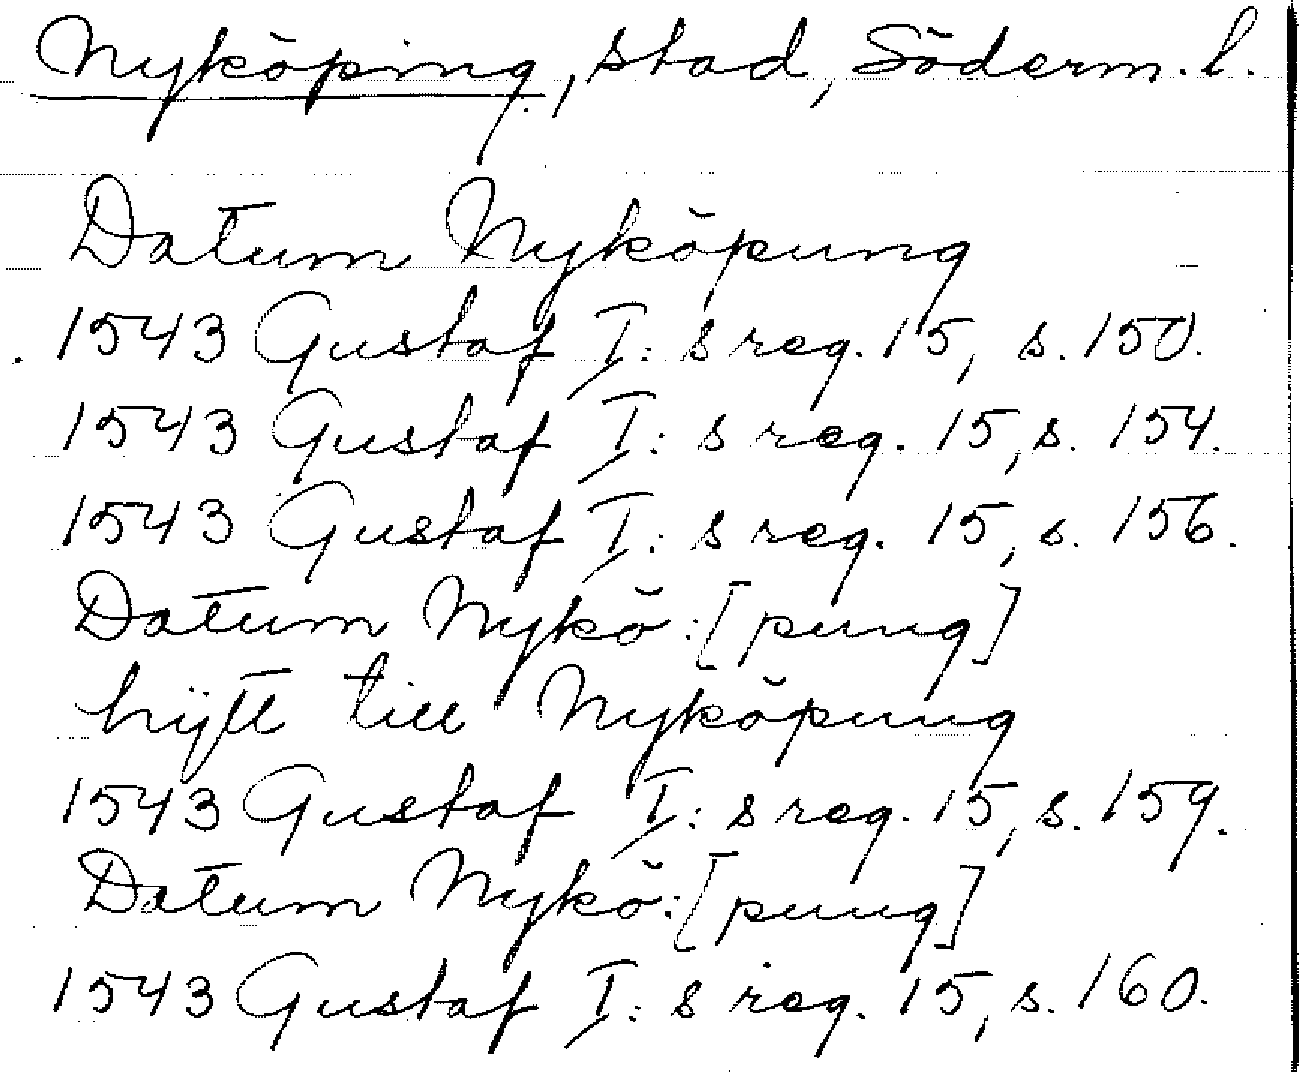 Nyköping, stad, Söderm. l.
Datum Nyköpung
1543 Gustaf I: s reg. 15, s. 150.
1543 Gustaf I: s reg. 15, s. 154.
1543 Gustaf I: s reg. 15, s. 156.
Datum Nykö: [pung]
hijtt till Nyköpung
1543 Gustaf I: s reg. 15, s. 159.
Datum Nykö: [pung]
1543 Gustaf I: s reg. 15, s. 160.